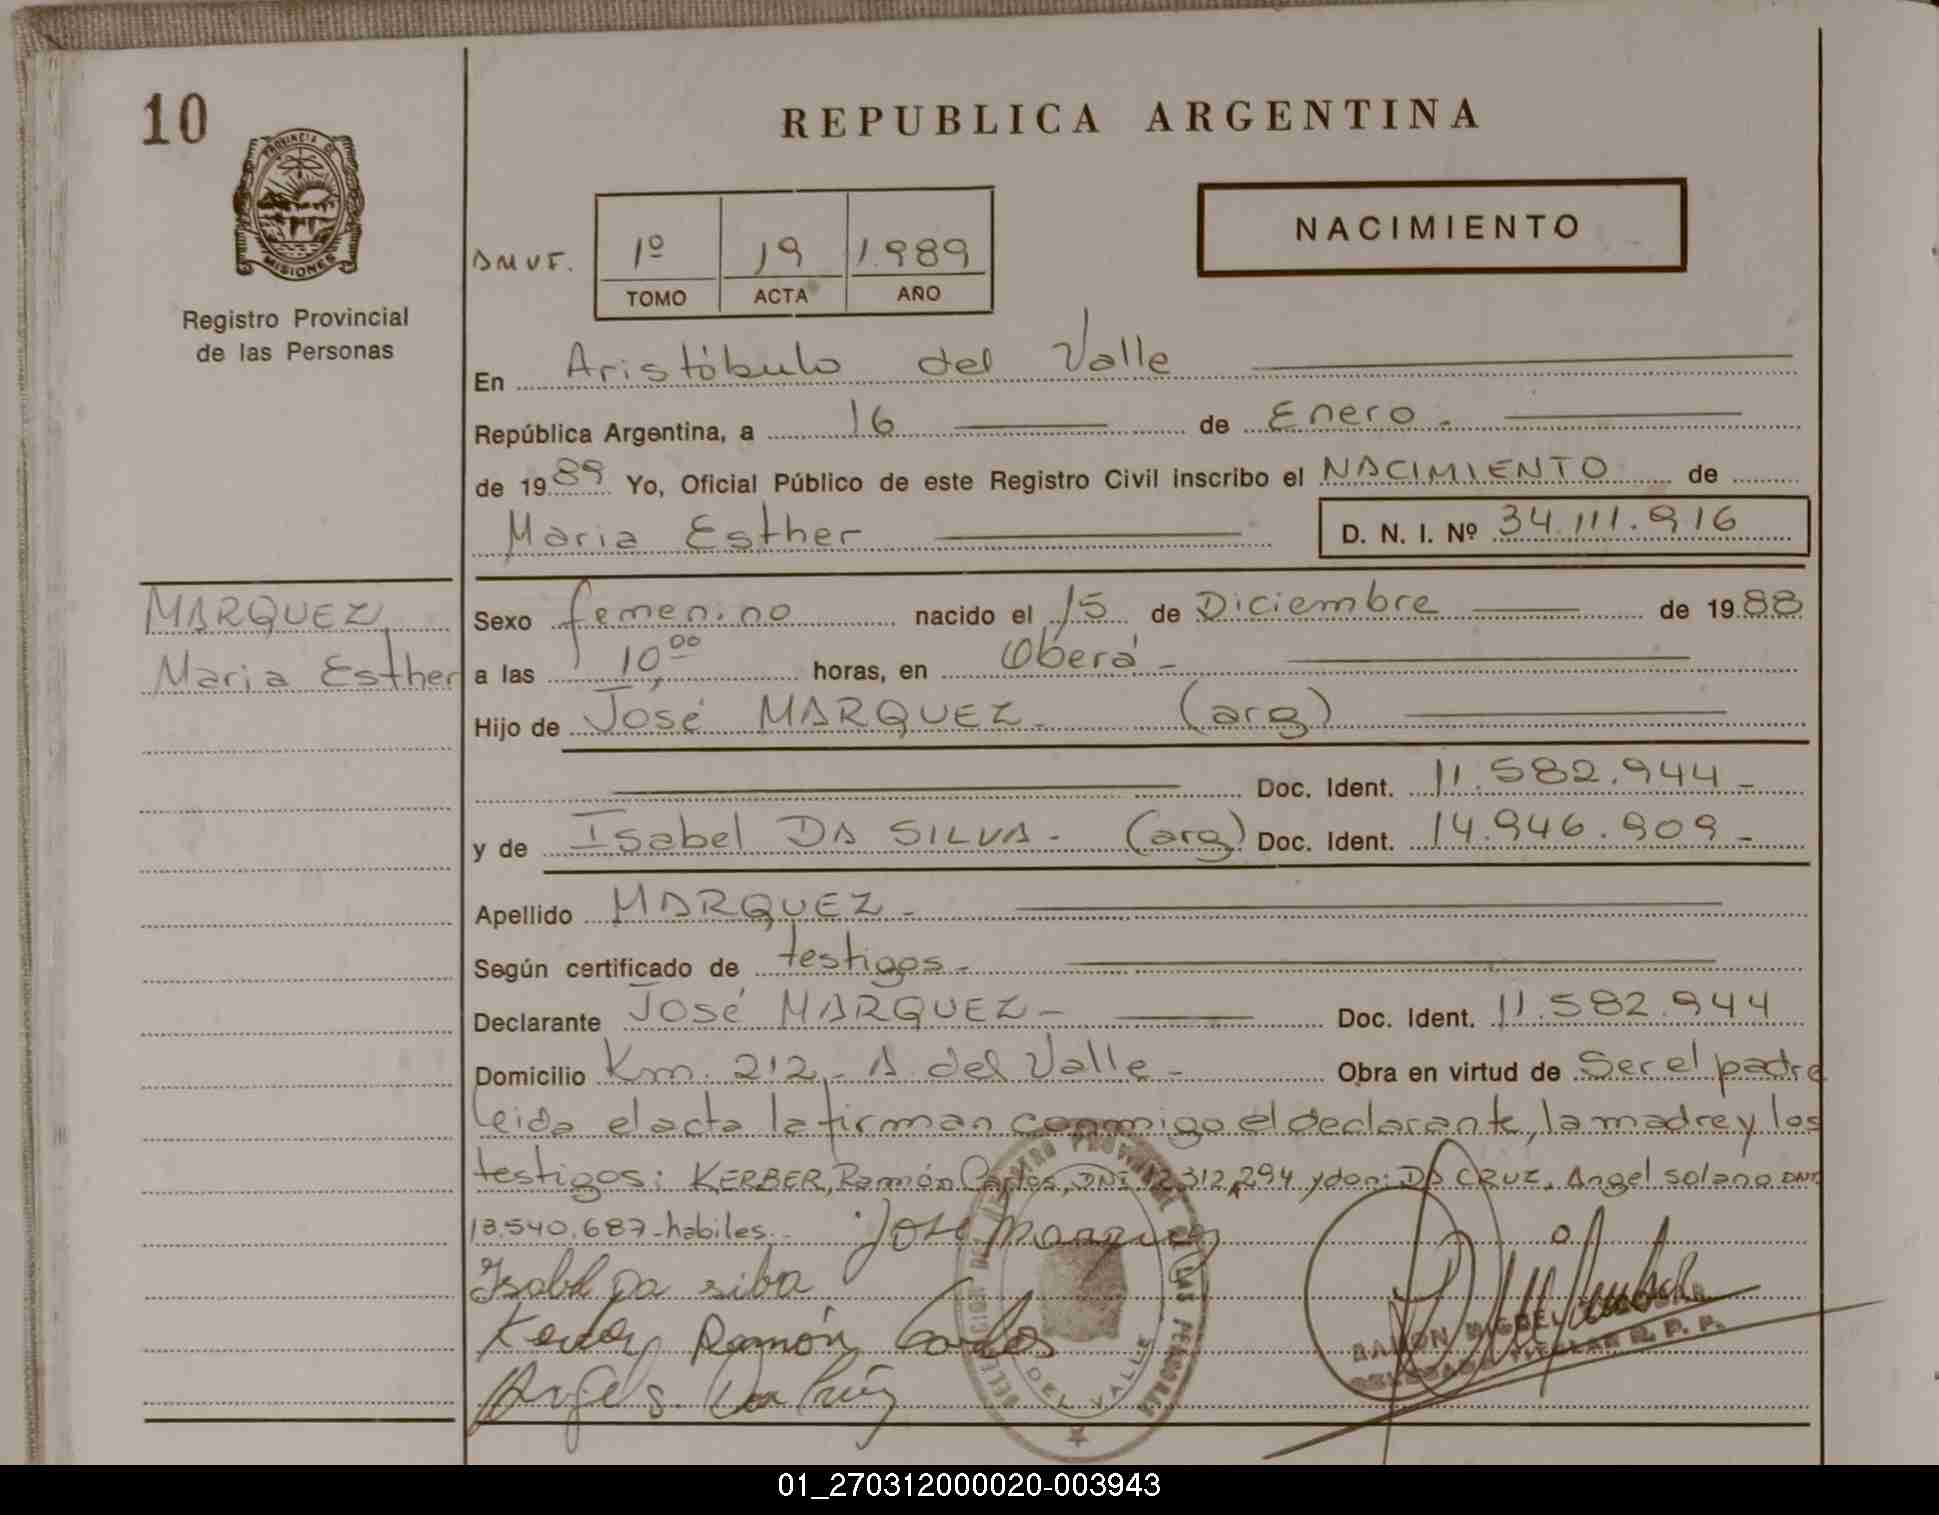 10
REPUBLICA ARGENTINA
PROVINCIA DE
MISIONES
Registro Provincial
de las Personas
1º 19 1.989
TOMO ACTA AÑO
NACIMIENTO
En Aristóbulo del Valle
República Argentina, a 16 de Enero.
de 1989 Yo, Oficial Público de este Registro Civil inscribo el NACIMIENTO de
Maria Esther D. N. I. Nº 34.111.916
MARQUEZ
Maria Esther
Sexo femenino nacido el 15 de Diciembre de 1988
a las 10,00 horas, en Oberá-
Hijo de José MARQUEZ- (arg)
Doc. Ident. 11.582.944-
y de Isabel DA SILVA- (arg) Doc. Ident. 14.946.909-
Apellido MARQUEZ-
Según certificado de testigos-
Declarante José MARQUEZ- Doc. Ident. 11.582.944
Domicilio Km. 212,- A. del Valle- Obra en virtud de Ser el padre
leida el acta la firman conmigo el declarante, la madre y los
testigos: KERBER, Ramón Carlos, DNI 12.312.294 y don: DA CRUZ, Angel Solano DNI
13.540.687-habiles.-
José Marquez
Isabel Da silva
Kerber Ramón Carlos
Angel S. Da Cruz
DEL VALLE
RAMON MIGUEL
DELEGADO TITULAR R. P. P.
01_270312000020-003943